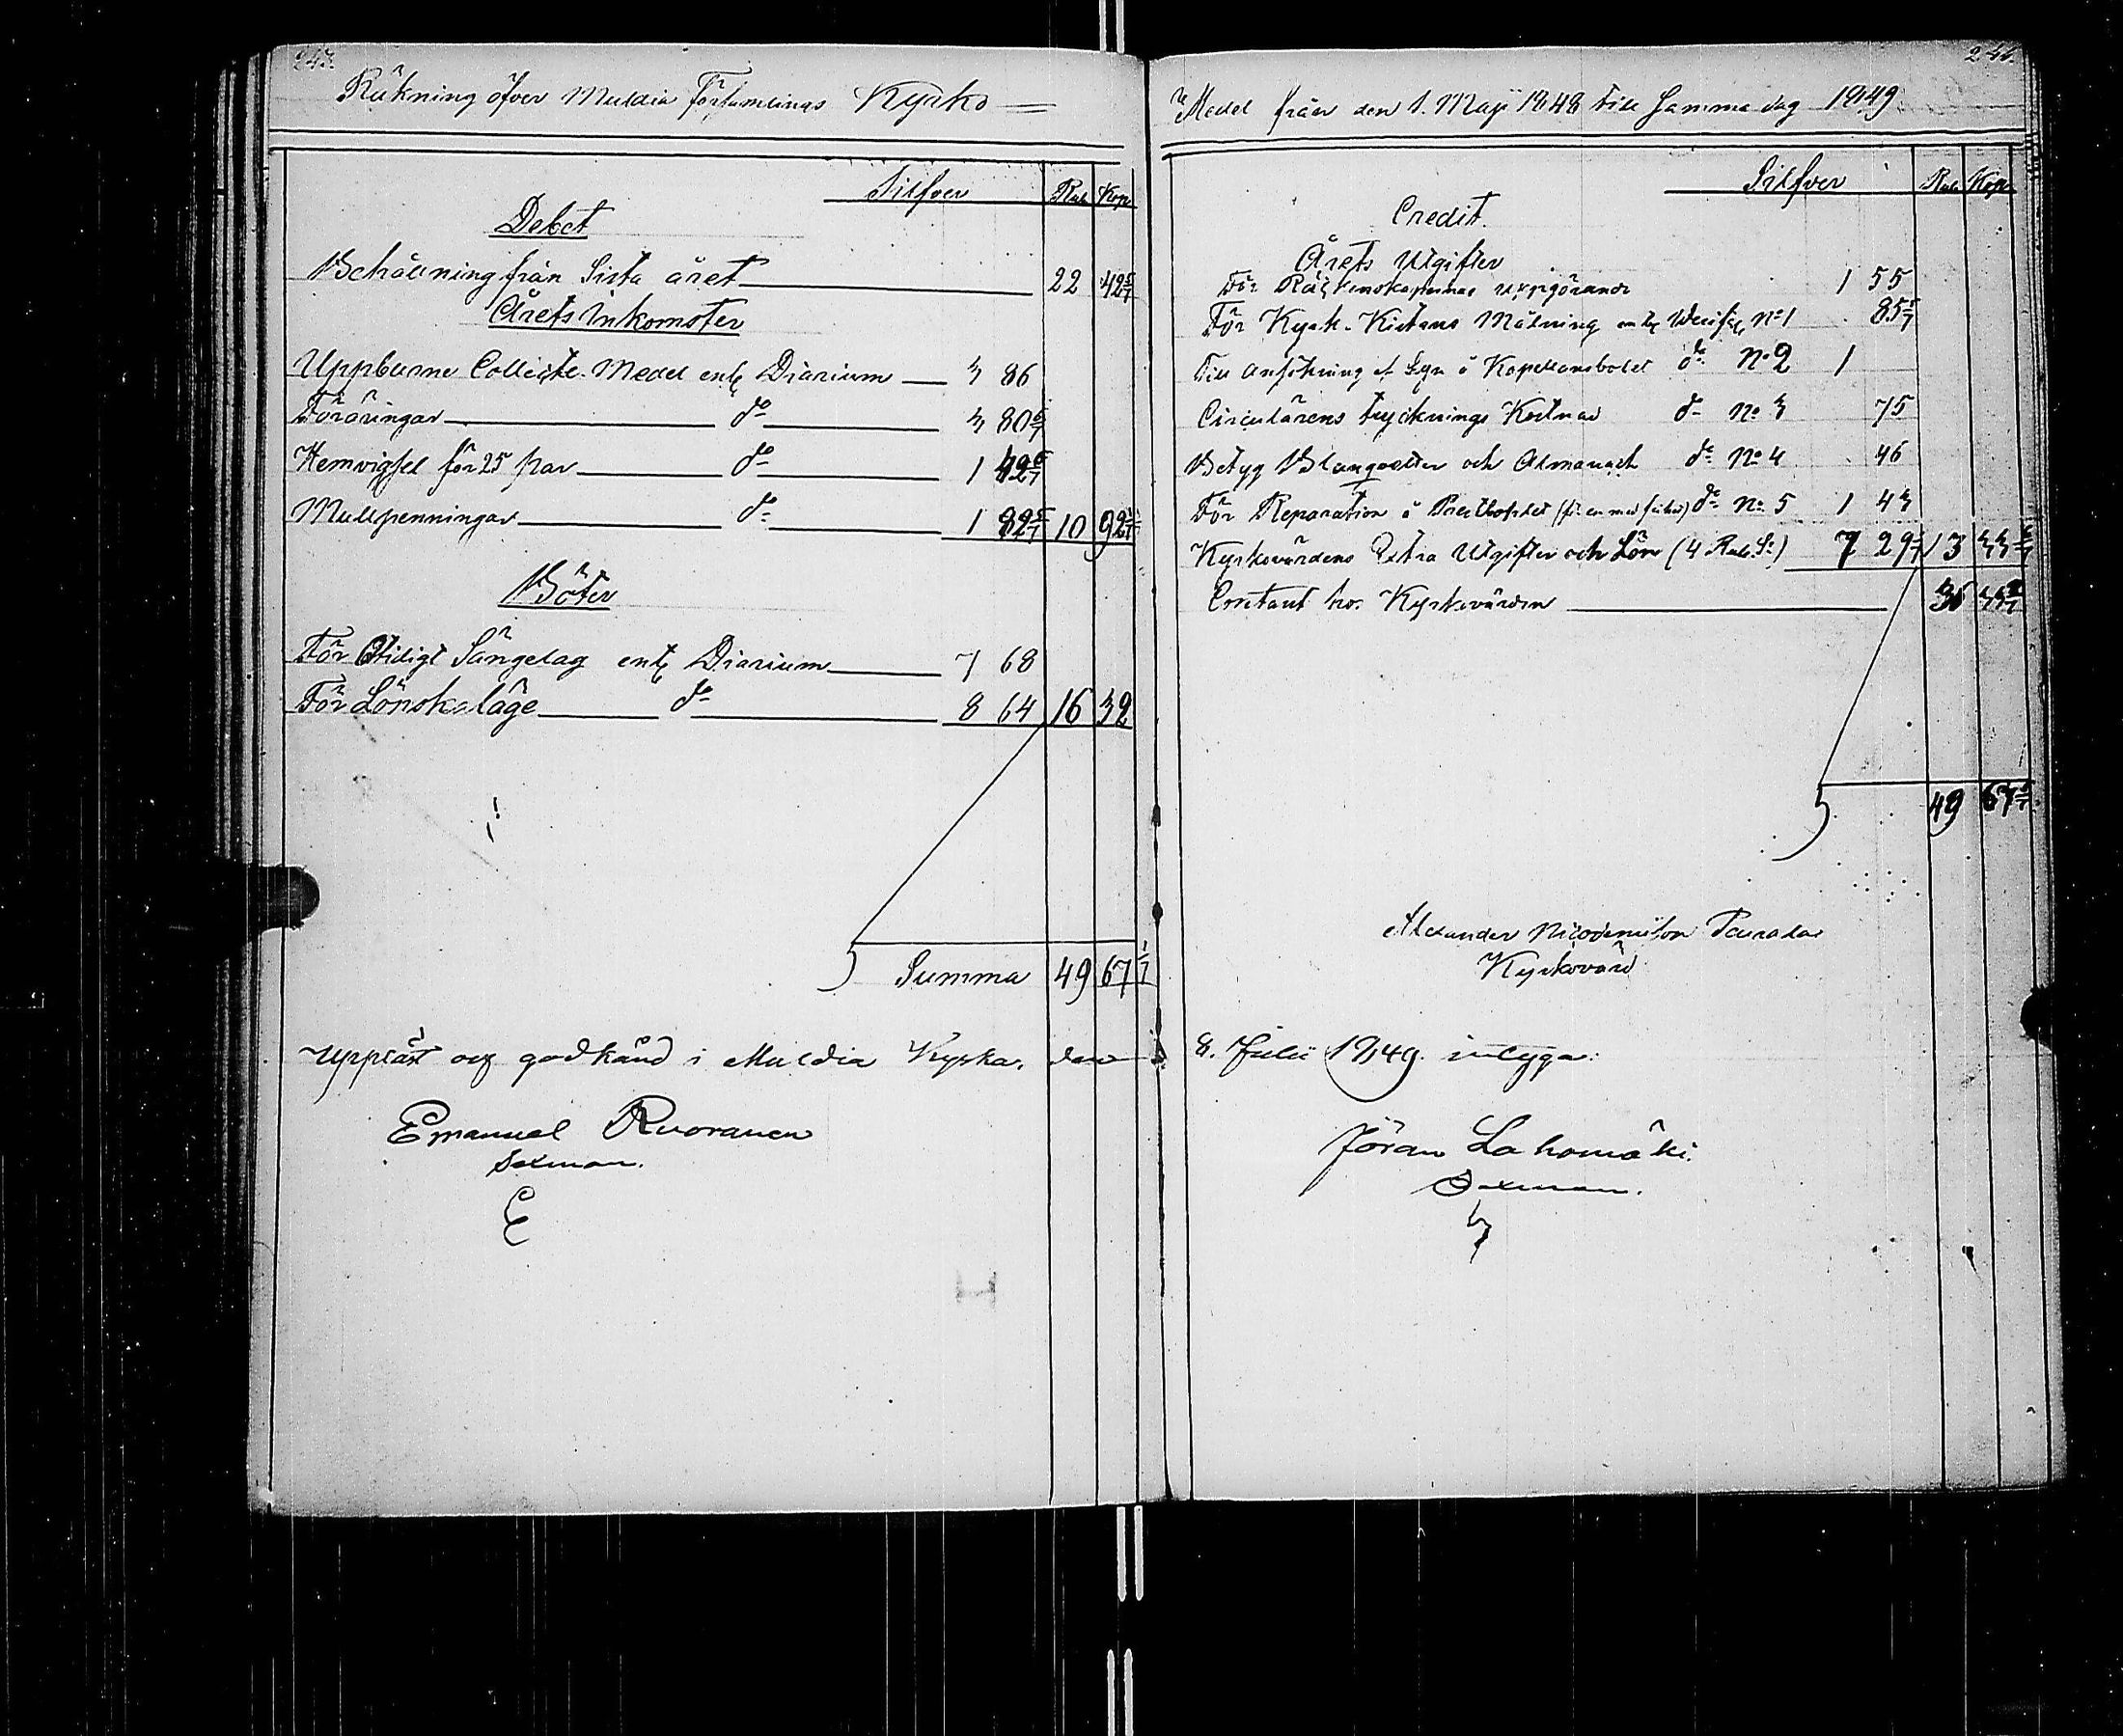 243.
Räkning öfver Muldia Församlings Kyrko
Silfver Rub Kop
Debet
Behållning från Sista året 22 42 6/7
Årets Inkomster
Uppburne Collecte Medel enl. Diarium 3 86
Föräringar do 3 80 6/7
Hemvigsel för 25 par do 1 42 6/7
Mullpenningar do 1 82 5/7 10 92 3/7
Böter
För Otidigt Sängelag enl. Diarium 7 68
För Lönskaläge do 8 64 16 32
Summa 49 67 1/7
Uppläst och godkänd i Muldia Kyrka, den
Emanuel Ruoranen
Sexman.
244.
Medel från den 1. Maji 1848 till Samma dag 1849
Silfver Rub Kop
Credit.
Årets Utgifter
För Räkenskapernas uppgörande 1 55
För Kyrk-Kistans Målning enl. Verific. No 1 85 5/7
Till Ansökning af Syn å Kapellansbolet do No 2 1
Circulärens trycknings Kostnad do No 3 75
Betyg Blanqvetter och Almanach do No 4 46
För Reparation å Prestbolet do No 5 1 43
Kyrkovärdens Extra Utgifter och Lön (4 Rub. Sr) 7 29 1/7 13 33 6/7
Contant hos Kyrkovärden 36 33 2/7
49 67 1/7
Alexander Nicodemusson Paunala
Kyrkovärd
8. Julii 1849. intyga:
Jöran Lahomäki.
Sexman.